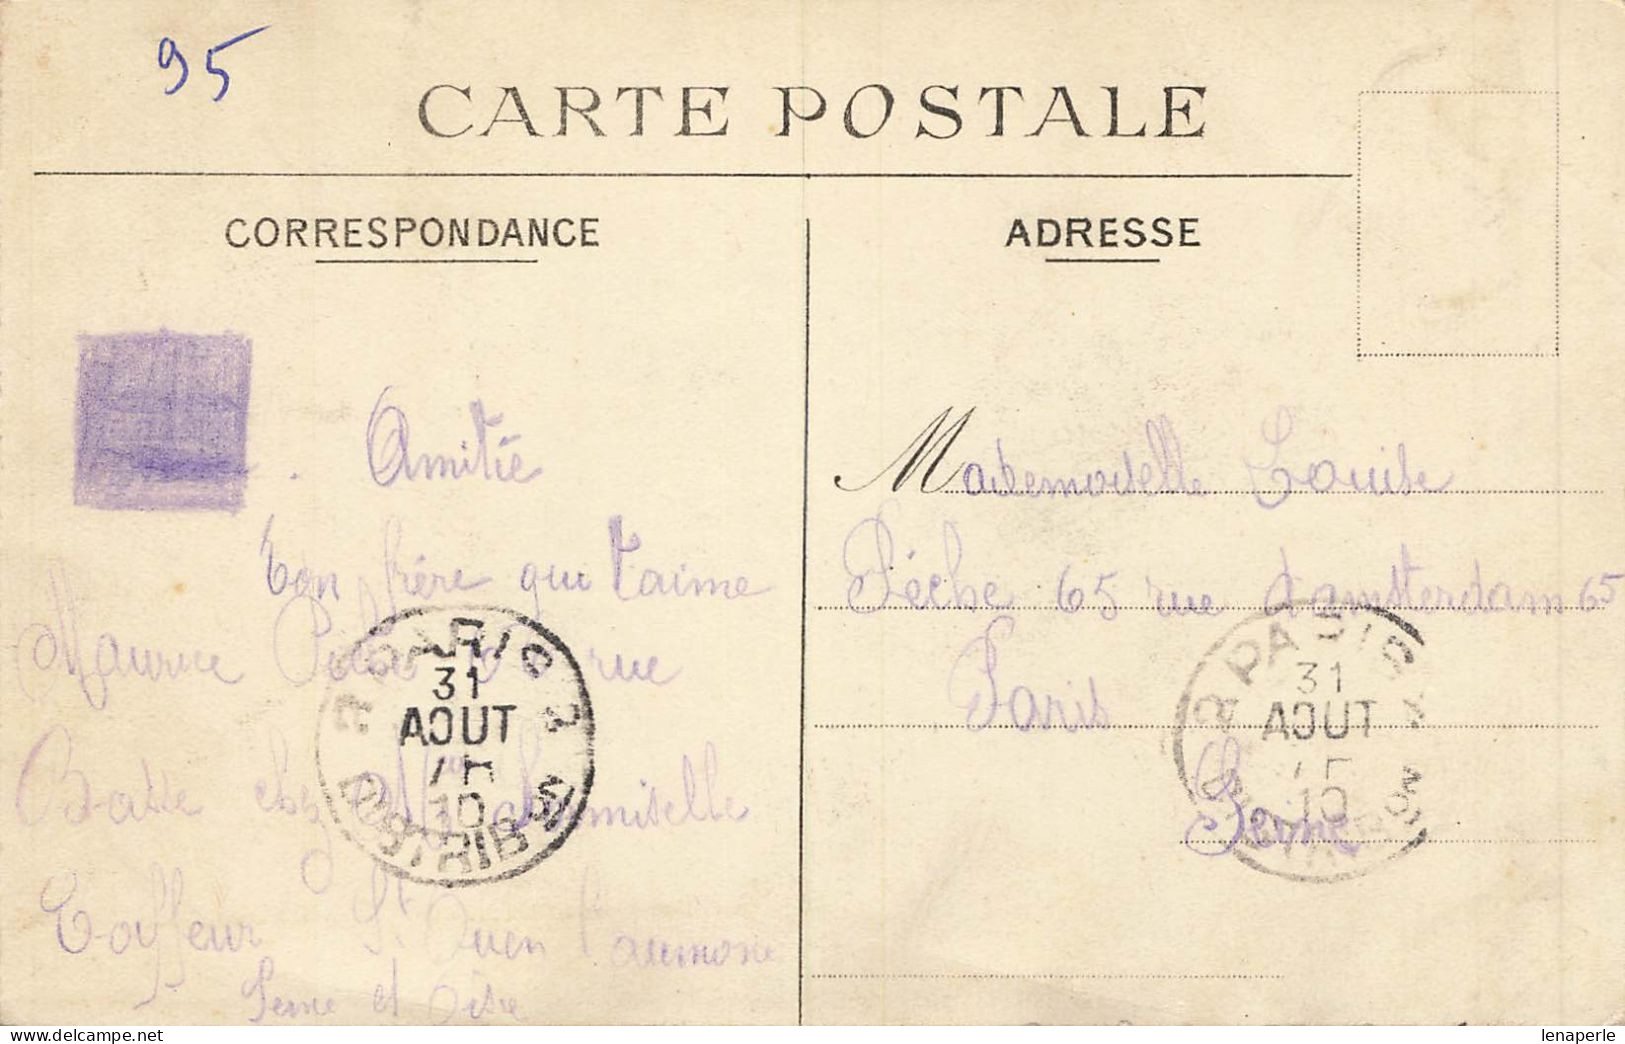 95
CARTE POSTALE
CORRESPONDANCE
Amitié
ton frère qui t'aime
Maurice rue
Basse chez Mr Lemiselle
Coiffeur St Ouen l'aumone
Seine et Oise
PARIS
31
AOUT
10
DISTRIBON
ADRESSE
Mademoiselle Louise
Pêche 65 rue d'amsterdam 65
Paris
Seine
PARIS
31
AOUT
10
lenaperle